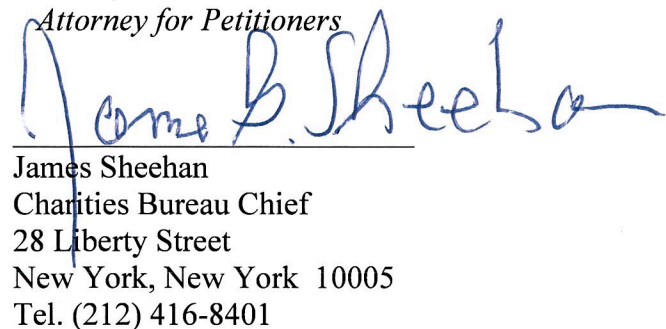 Attorney for Petitioners
James B. Sheehan
James Sheehan
Charities Bureau Chief
28 Liberty Street
New York, New York 10005
Tel. (212) 416-8401